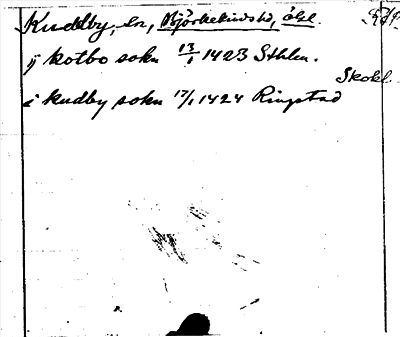 Kuddby, sn, Björkekinds hd, ögl.
ij kotbo sokn 13/1 1423 Sthlm.
Skokl.
i kudby sokn 17/1 1424 Ringstad